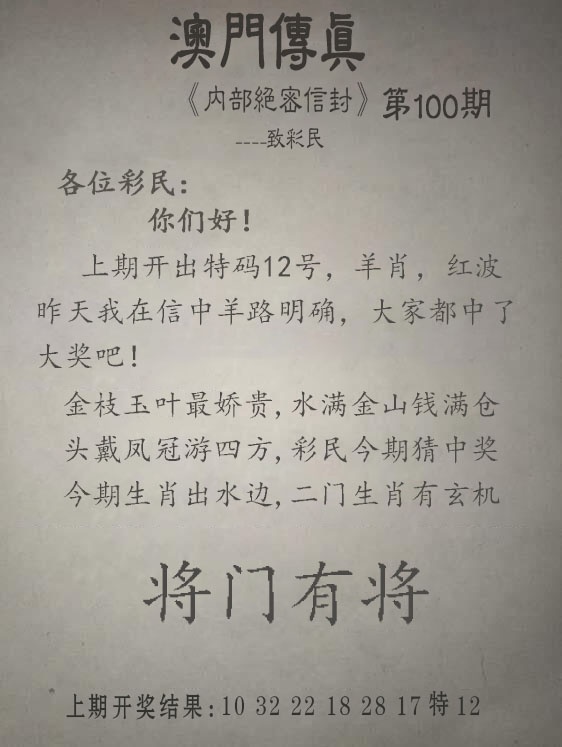 澳門傳真
《内部絕密信封》第100期
----致彩民
各位彩民：
你们好！
上期开出特码12号，羊肖，红波
昨天我在信中羊路明确，大家都中了
大奖吧！
金枝玉叶最娇贵,水满金山钱满仓
头戴凤冠游四方,彩民今期猜中奖
今期生肖出水边,二门生肖有玄机
将门有将
上期开奖结果:10 32 22 18 28 17特12